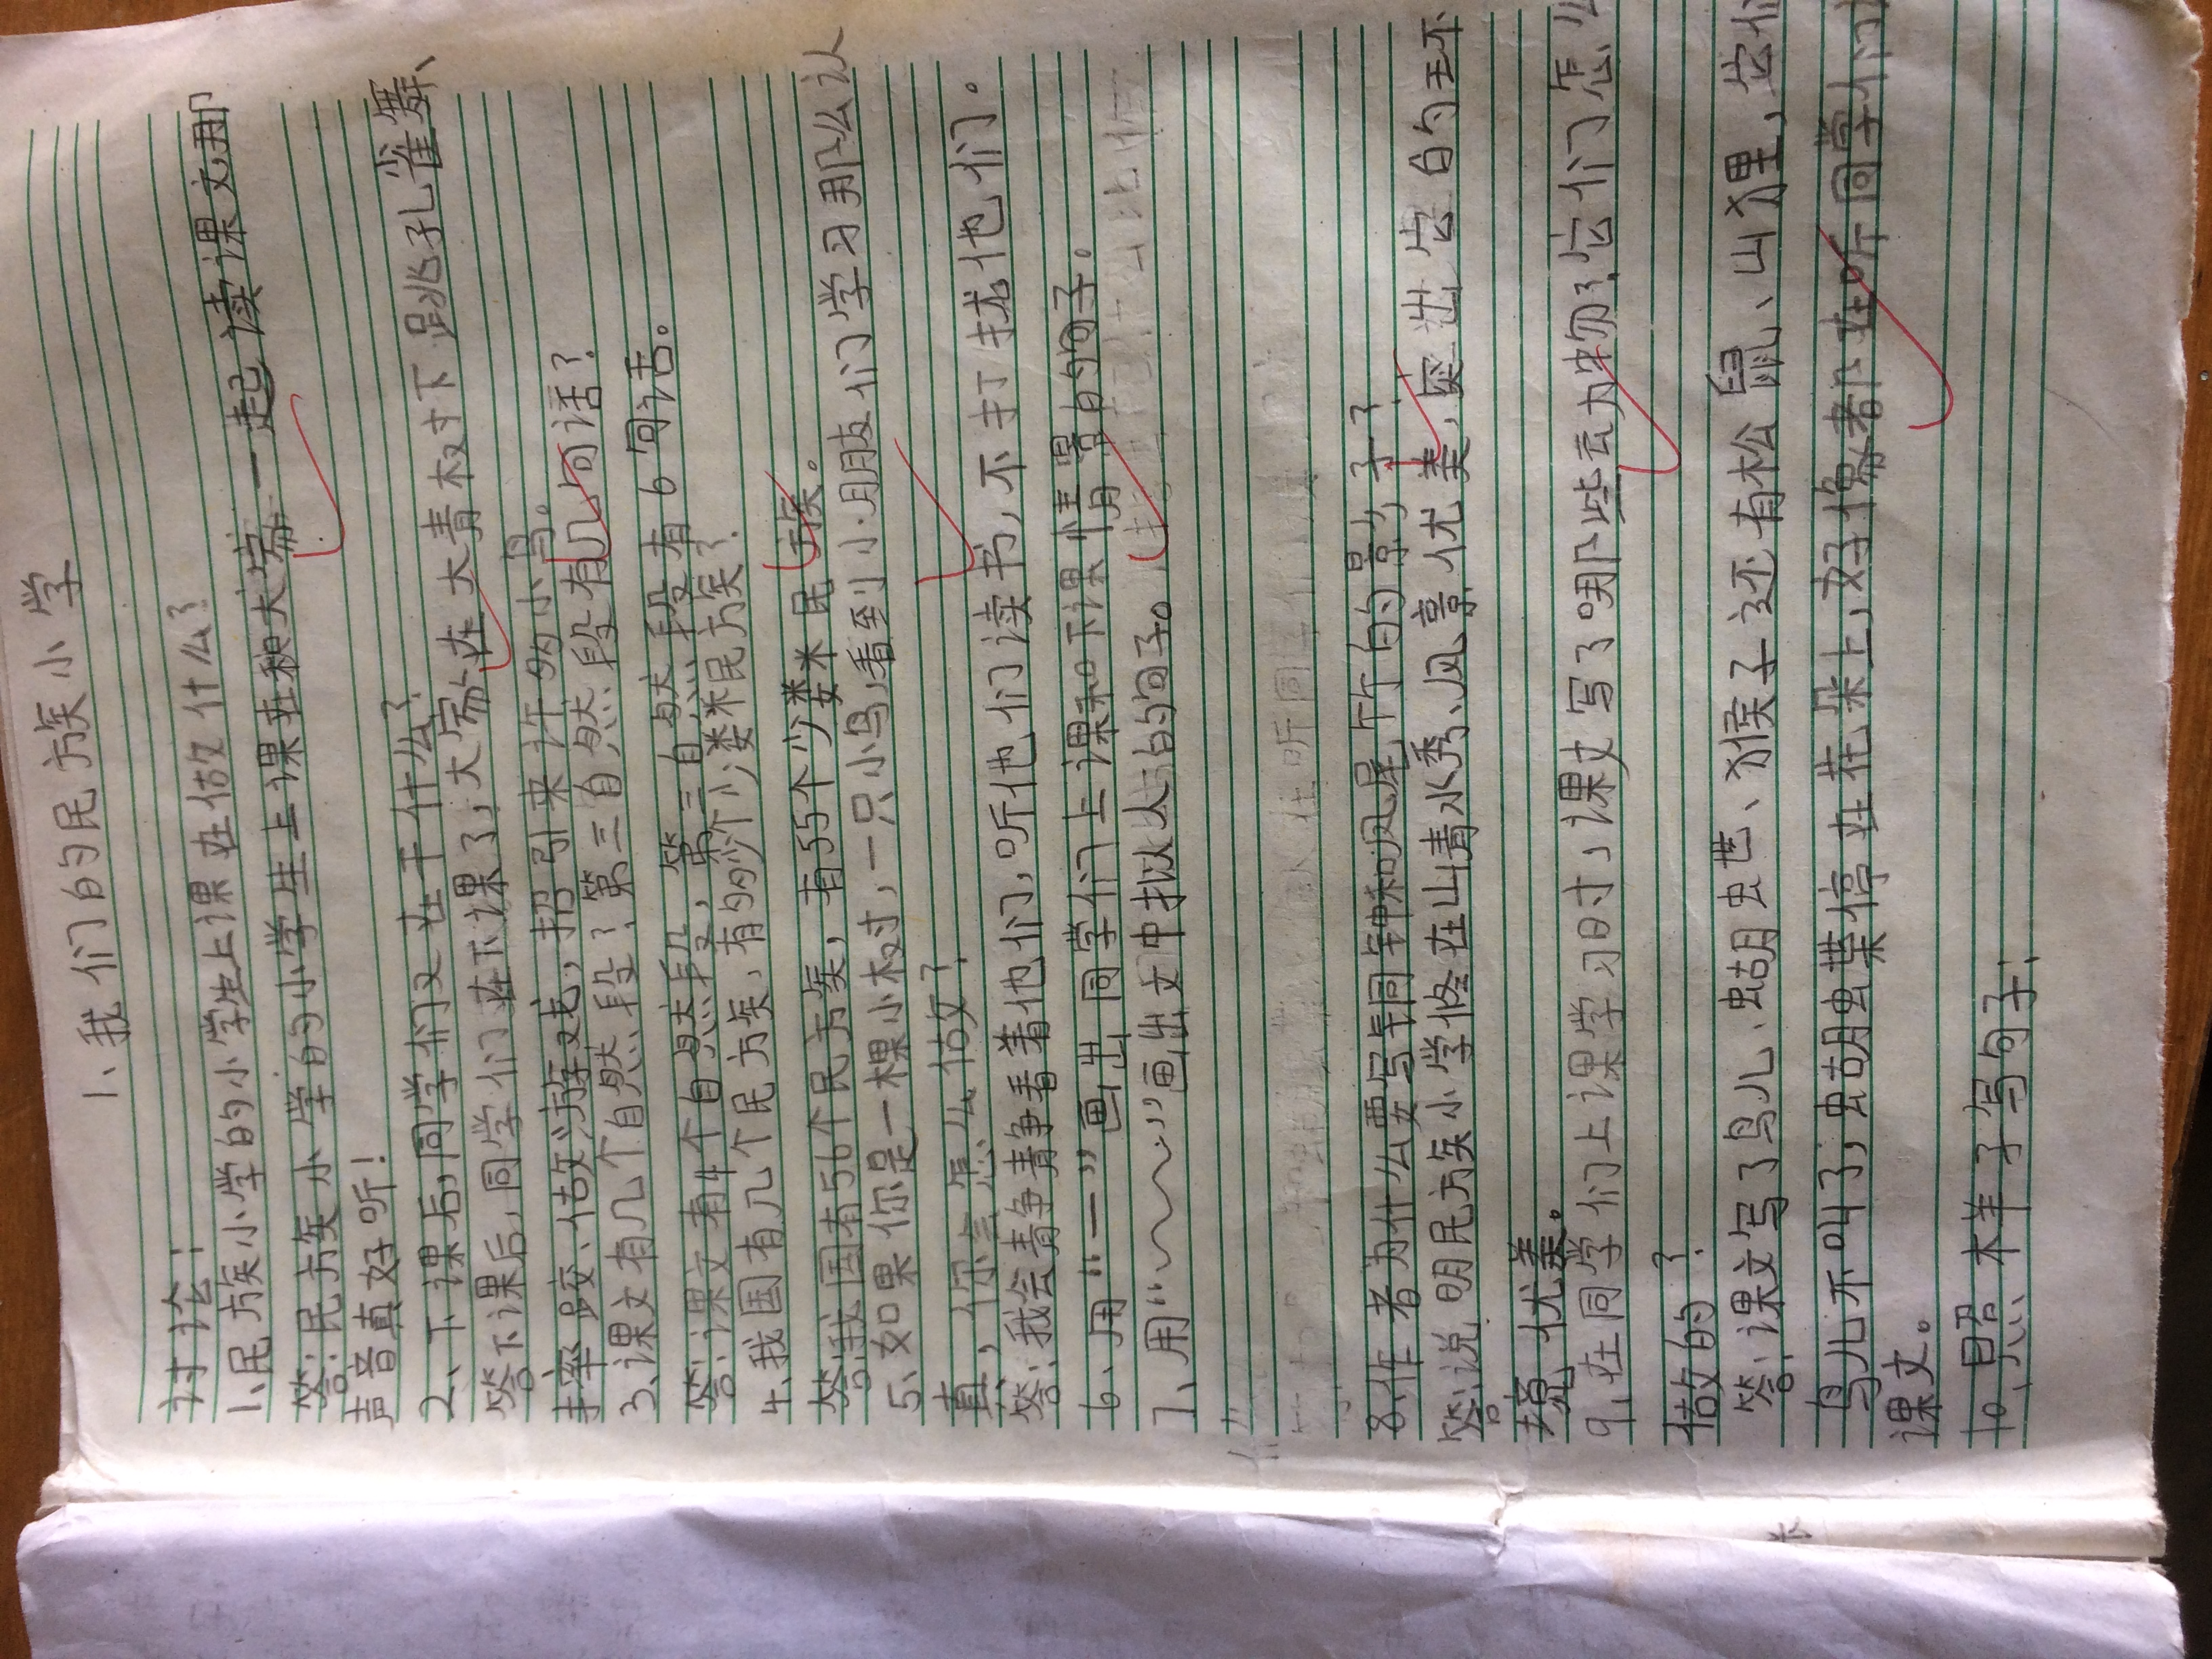 1、我们的民族小学
讨论:
1、民族小学的小学生上课在做什么?
答:民族小学的小学生上课在和大家一起读课文,那
声音真好听!
2、下课后,同学们又在干什么?
答:下课后,同学们在下课了,大家在大青树下跳孔雀舞、
摔跤、做游戏,招引来许多的小鸟。
3、课文有几个自然段?第三自然段有几句话?
答:课文有4个自然段,第三自然段有6句话。
4、我国有几个民族,有多少个少数民族?
答:我国有56个民族,有55个少数民族。
5、如果你是一棵小树,一只小鸟,看到小朋友们学习那么认
真,你会怎么做?
答:我会静静看着他们,听他们读书,不打扰他们。
6、用“—”画出同学们上课和下课情景的句子。
7、用“﹏﹏”画出文中拟人的句子。
8、作者为什么要写铜钟和凤尾竹的影子?
答:说明民族小学修在山青水秀、风景优美,突出它的环
境优美。
9、在同学们上课学习时,课文写了哪些动物?它们怎么
做的?
答:课文写了鸟儿、蝴蝶、猴子还有松鼠、山狸,它们
鸟儿不叫了,蝴蝶停在花朵上,好像都在听同学们
课文。
10、照样子写句子: